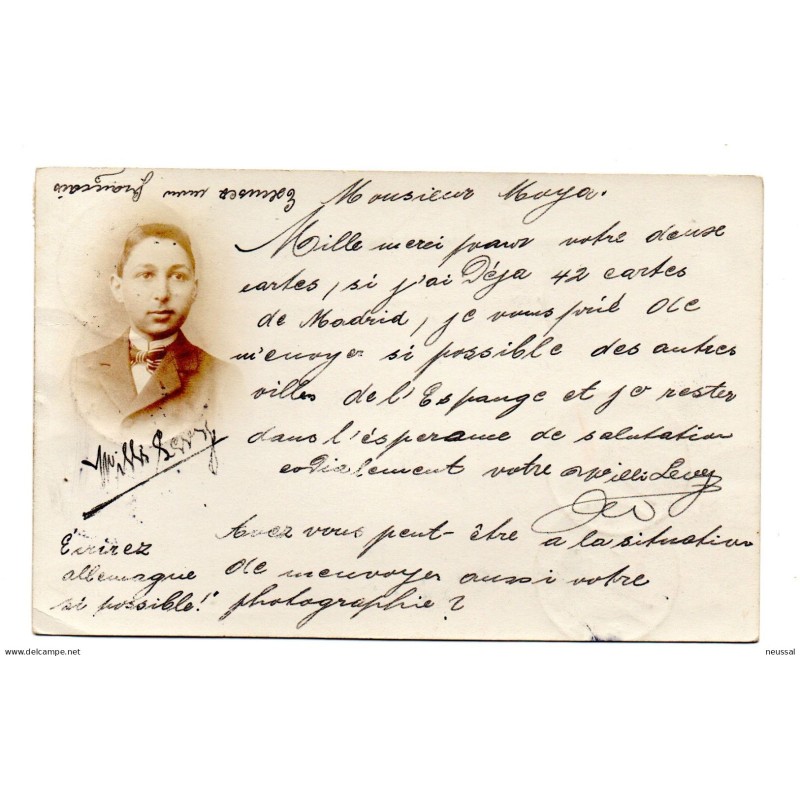 Exusez mon français
Monsieur Moya.
Mille merci pour votre deuxe
cartes, si j'ai Déja 42 cartes
de Madrid, je vous prié de
m'envoyer si possible des autres
villes de l'Espange et je rester
dans l'ésperame de salutation
codialement votre Willi Levy
Willi Levy
Avez vous peut-être a la situation
de menvoyer aussi votre
photographie?
Ecrirez
allemague
si possible!"
www.delcampe.net
neussal